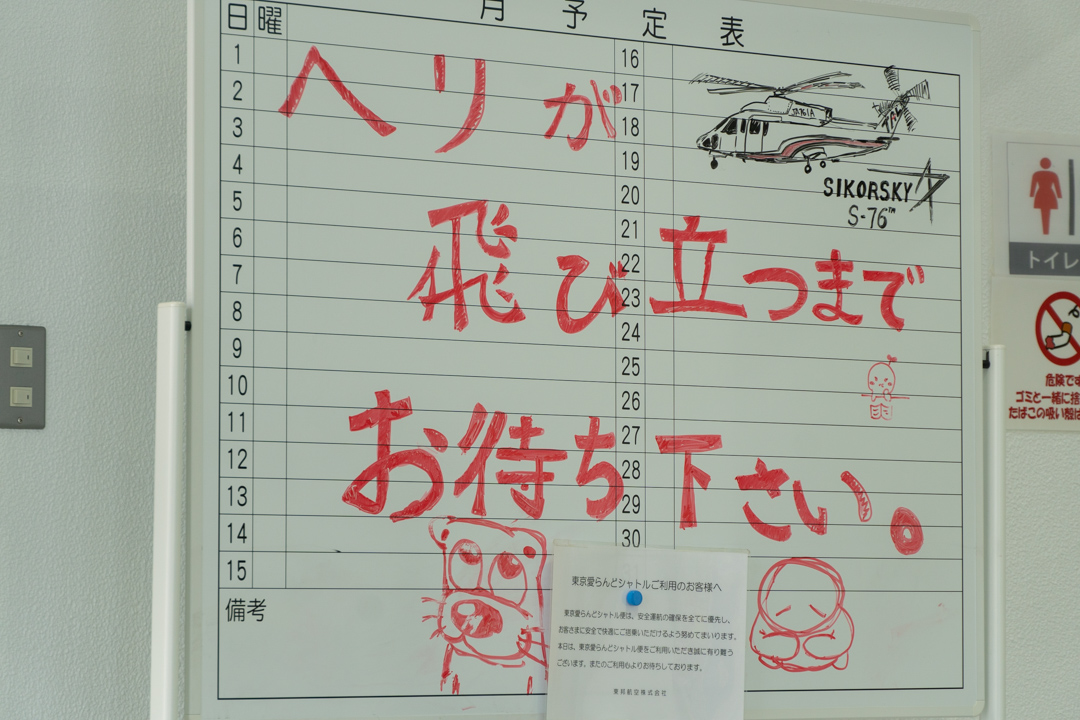 月予定表
日 曜
1
2
3
4
5
6
7
8
9
10
11
12
13
14
15
備考
16
17
18
19
20
21
22
23
24
25
26
27
28
29
30
ヘリが
飛び立つまで
お待ち下さい。
SIKORSKY
S-76™
東京愛らんどシャトルご利用のお客様へ
東京愛らんどシャトル便は、安全運航の確保を全てに優先し、
お客さまに安全で快適にご搭乗いただけるよう努めてまいります。
本日は、東京愛らんどシャトル便をご利用いただき誠に有り難う
ございます。またのご利用心よりお待ちしております。
東邦航空株式会社
トイレ
危険です
ゴミと一緒に捨
たばこの吸い殻は